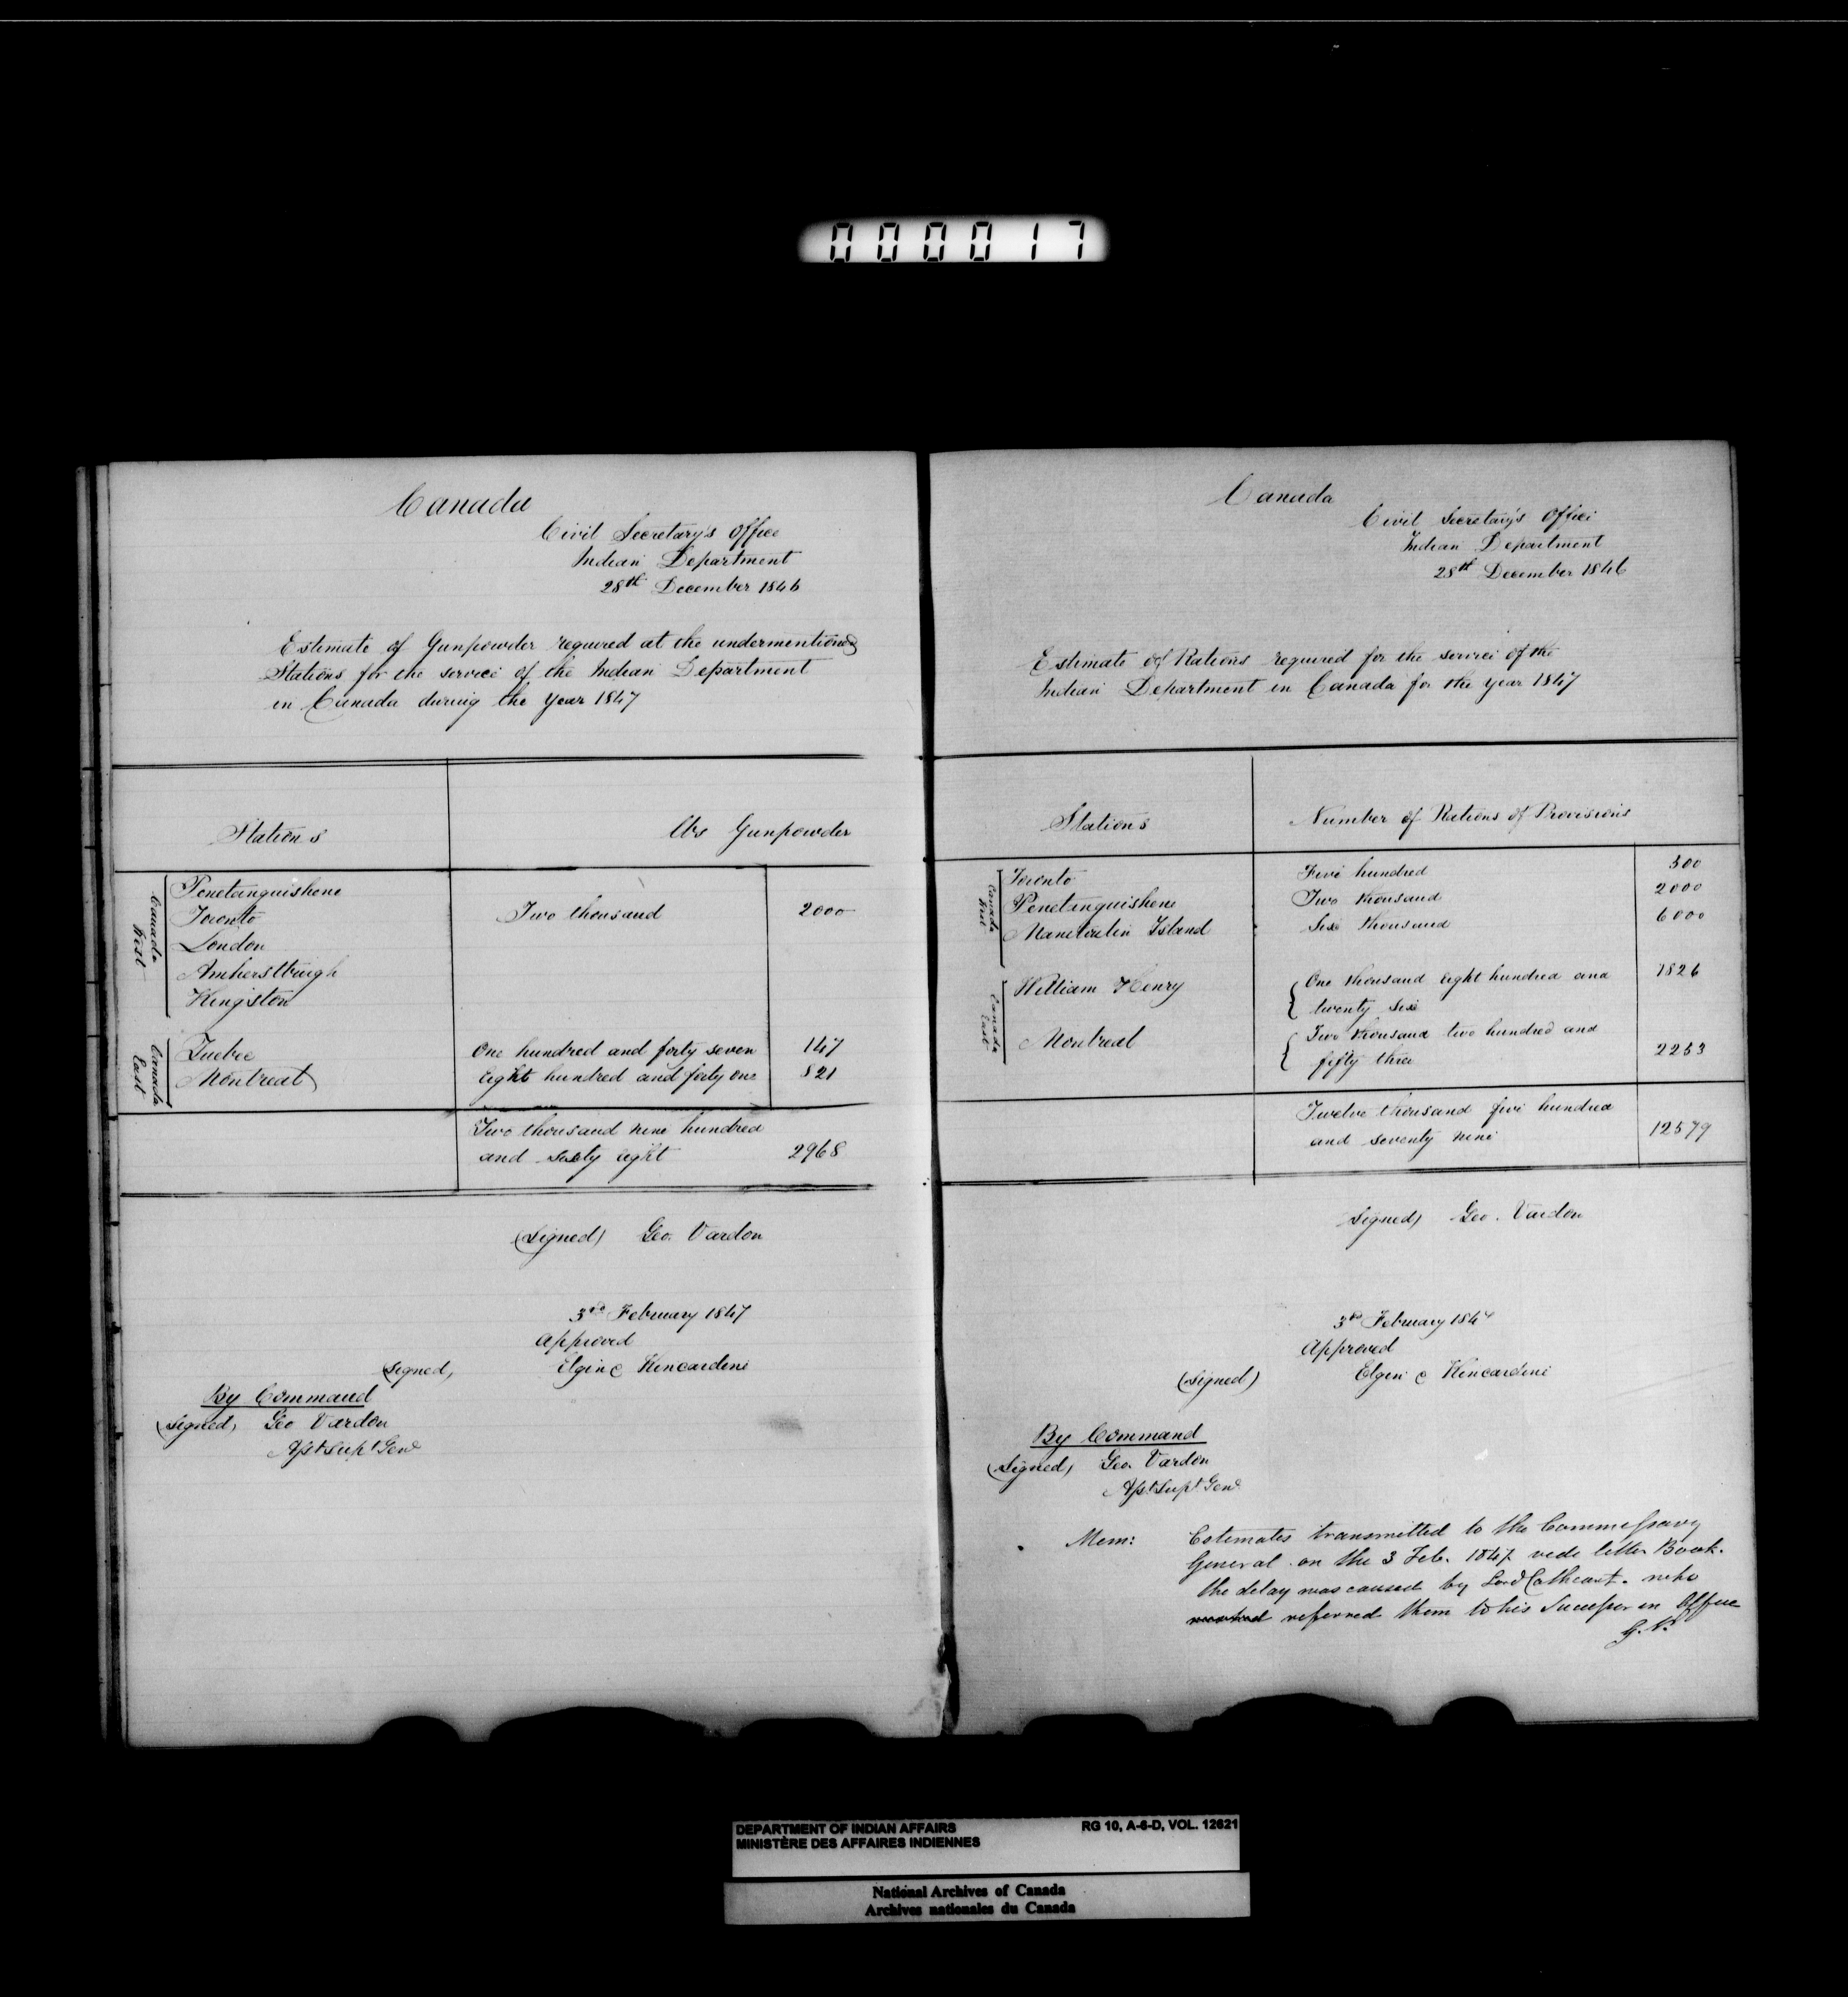 000017
Canada
Civil Secretary's Office
Indian Department
28th December 1846
Estimate of Gunpowder required at the undermentioned
Stations for the service of the Indian Department
in Canada during the year 1847
Stations
lbs Gunpowder
Canada West
Penetanguishene
Toronto
Two thousand 2000
London
Amherstburgh
Kingston
Canada East
Quebec One hundred and forty seven 147
Montreal Eight hundred and forty one 821
Two thousand nine hundred
and sixty eight 2968
(Signed) Geo. Vardon
3rd February 1847
Approved
(Signed) Elgin & Kincardine
By Command
(Signed) Geo Vardon
Asst Supt Genl
Canada
Civil Secretary's Office
Indian Department
28th December 1846
Estimate of Rations required for the service of the
Indian Department in Canada for the year 1847
Stations
Number of Rations of Provisions
Canada West
Toronto Five hundred 500
Penetanguishene Two thousand 2000
Manitoulin Island Six thousand 6000
Canada East
William Henry One thousand eight hundred and 1826
twenty six
Montreal Two thousand two hundred and
fifty three 2253
Twelve thousand five hundred
and seventy nine 12579
(Signed) Geo. Vardon
3rd February 1847
Approved
(Signed) Elgin & Kincardine
By Command
(Signed) Geo. Vardon
Asst Supt Genl
Mem: Estimates transmitted to the Commissary
General on the 3 Feb. 1847 vide letter Book.
the delay was caused by Lord Cathcart. who
referred them to his Successor in Office
G. V.
DEPARTMENT OF INDIAN AFFAIRS RG 10, A-6-D, VOL. 12621
MINISTÈRE DES AFFAIRES INDIENNES
National Archives of Canada
Archives nationales du Canada